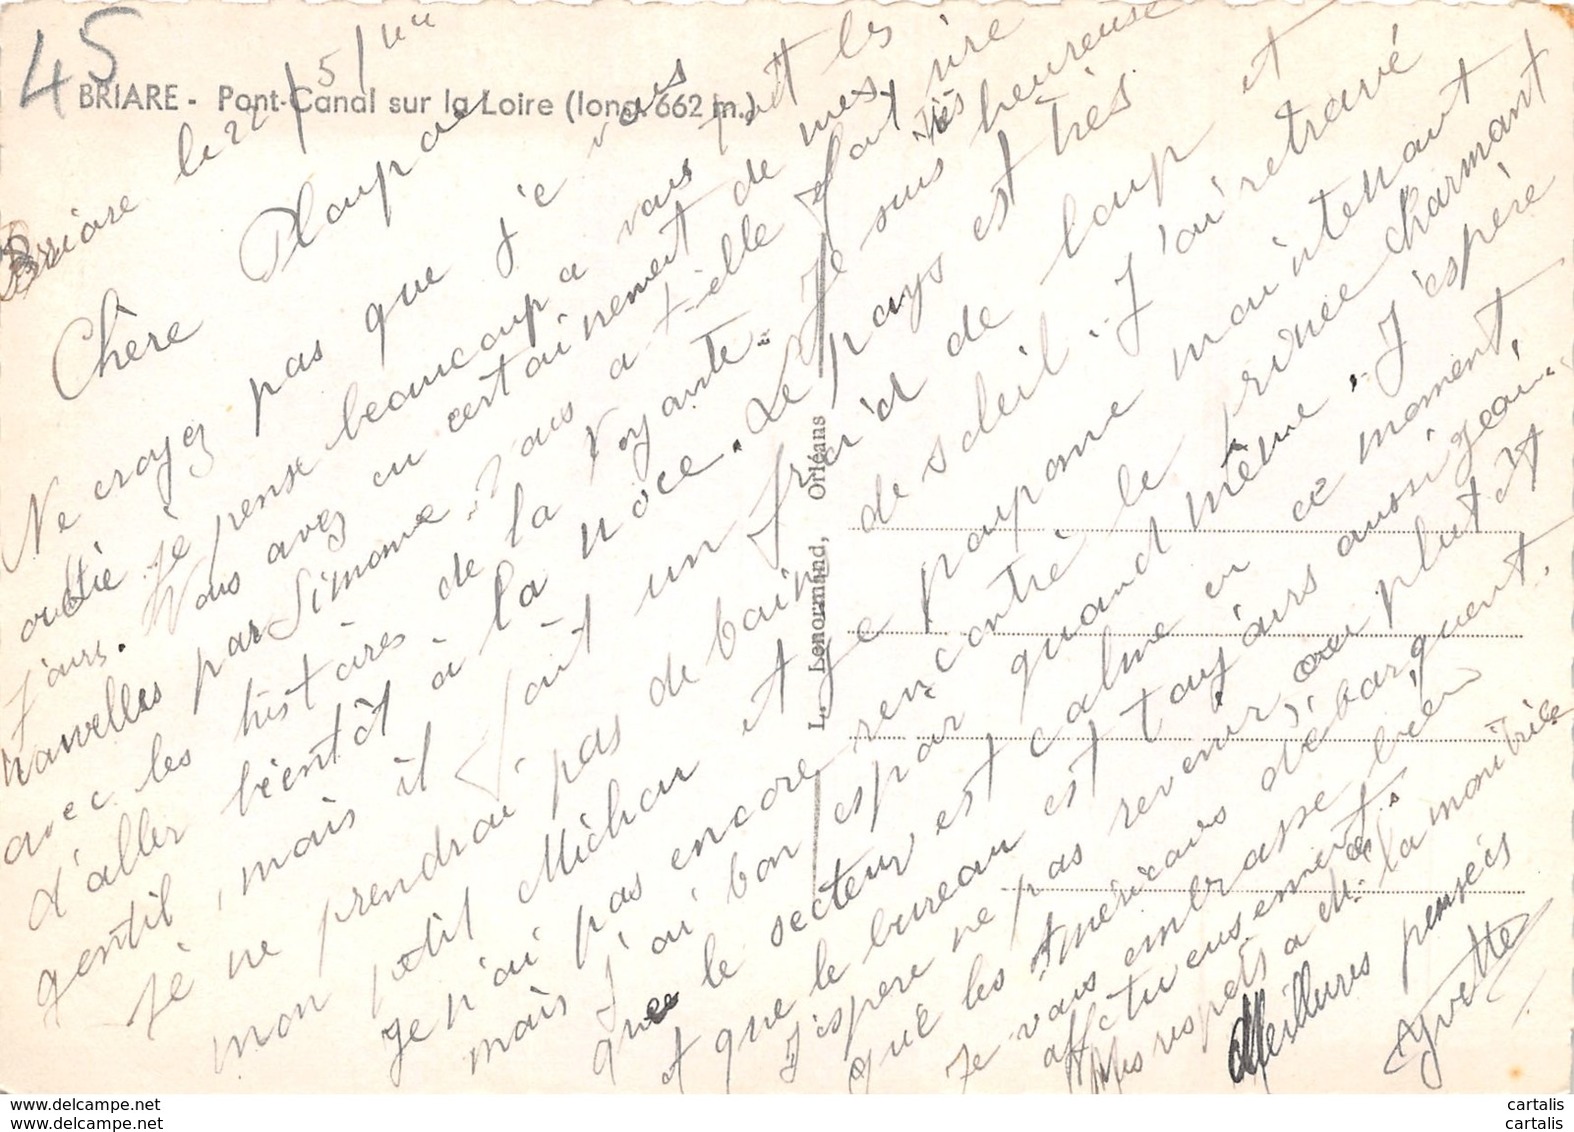 45
BRIARE - Pont-Canal sur la Loire (long. 662 m.)
Briare le 22/5/44
Chère
Ne croyez pas que je vous
oublie je pense beaucoup a vous tout les
jours. Vous avez eu certainement de mes
nouvelles par Simone Vous a t-elle fait rire
avec les histoires de la Voyante. Je suis très heureuse
d'aller bientôt à la noce. Le pays est très
gentil, mais il fait un froid de loup et
je ne prendrai pas de bain de soleil. J'ai retrouvé
mon petit Michou et je pouponne maintenant
Je n'ai pas encore rencontré le prince charmant
mais j'ai bon espoir quand même. J'espère
que le secteur est calme en ce moment,
et que le bureau est toujours aussi
J'espere ne pas revenir ou plutôt
que les Américains débarquent.
Je vous embrasse bien
affectueusement.
Mes respects a Mr la
Meillures pensées
Yvette
L. Lenormand, Orléans
cartalis
cartalis
cartalis
cartalis